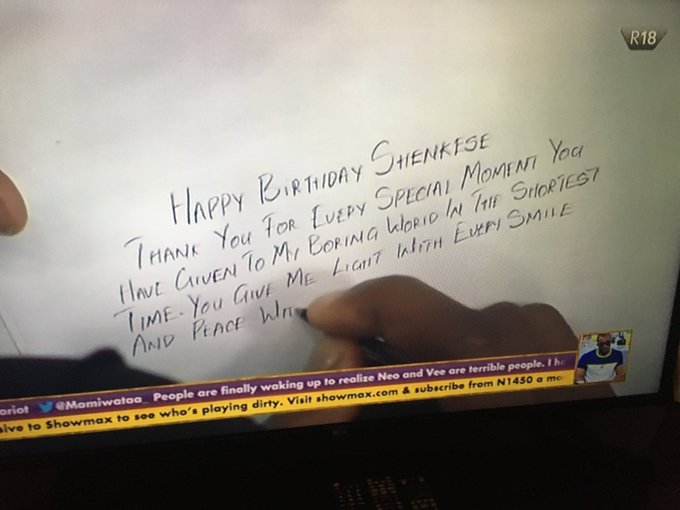 R18
HAPPY BIRTHDAY SHENKESE
THANK YOU FOR EVERY SPECIAL MOMENT YOU
HAVE GIVEN TO MY BORING WORLD IN THE SHORTEST
TIME. YOU GIVE ME LIGHT WITH EVERY SMILE
AND PEACE
ariot @Mamiwataa_ People are finally waking up to realize Neo and Vee are terrible people. I
sive to Showmax to see who's playing dirty. Visit showmax.com & subscribe from N1450 a